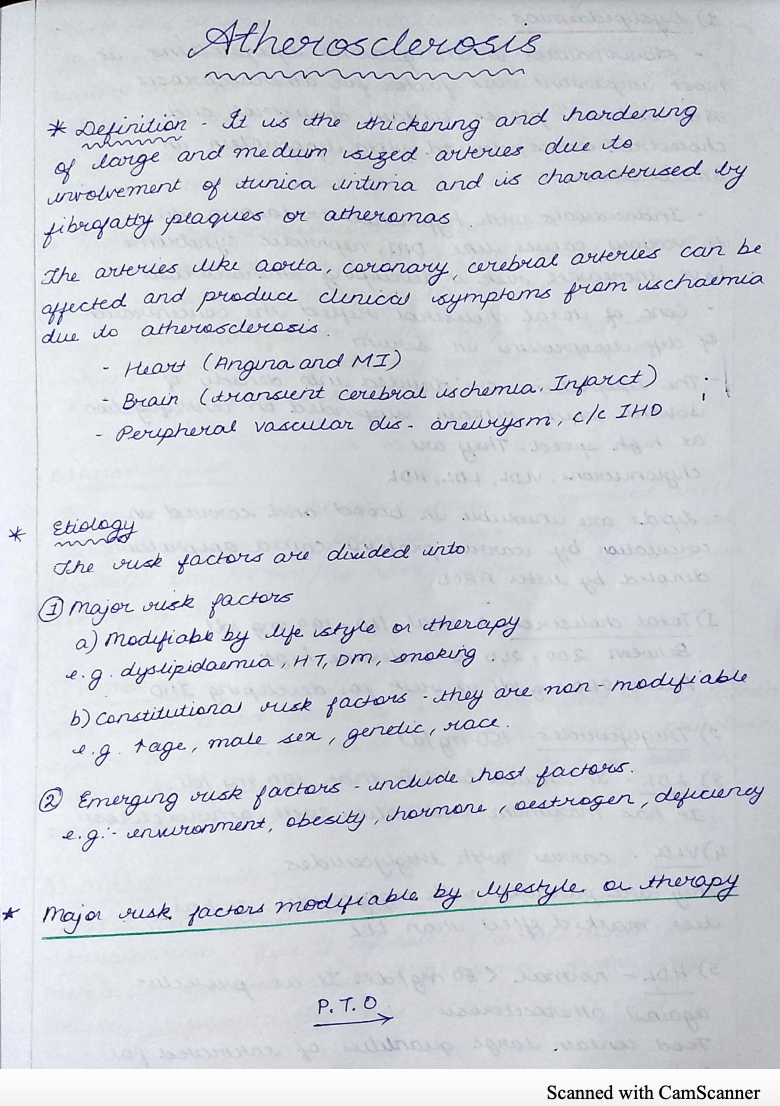 Atherosclerosis
* Definition - It is the thickening and hardening
of large and medium sized arteries due to
involvement of tunica intima and is characterised by
fibrofatty plaques or atheromas.
The arteries like aorta, coronary, cerebral arteries can be
affected and produce clinical symptoms from ischaemia
due to atherosclerosis.
- Heart (Angina and MI)
- Brain (transient cerebral ischemia, Infarct)
- Peripheral vascular dis - aneurysm, c/c IHD
* Etiology
The risk factors are divided into
① Major risk factors
a) Modifiable by life style or therapy
e.g. dyslipidaemia, HT, DM, smoking.
b) Constitutional risk factors - they are non-modifiable
e.g. ↑age, male sex, genetic, race.
② Emerging risk factors - include host factors.
e.g:- environment, obesity, hormone, oestrogen, deficiency
* Major risk factors modifiable by lifestyle or therapy
P.T.O
Scanned with CamScanner